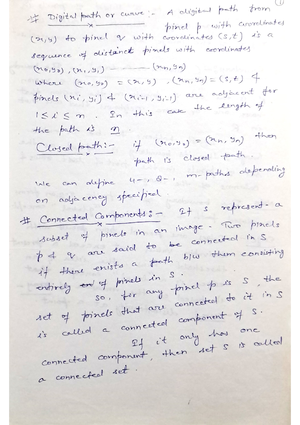 (1)
# Digital path or curve :- A digital path from
pixel p with coordinates
(x,y) to pixel q with coordinates (s,t) is a
sequence of distinct pixels with coordinates
(x0,y0), (x1,y1) ——— (xn,yn)
where (x0,y0) = (x,y) , (xn,yn) = (s,t) &
pixels (xi,yi) & (xi-1,yi-1) are adjacent for
1≤i≤n. In this case the length of
the path is n
Closed path:- if (x0,y0) = (xn,yn) then
path is closed path.
We can define 4-, 8-, m-paths depending
on adjacency specified
# Connected Components:- If S represent a
subset of pixels in an image. Two pixels
p & q are said to be connected in S
if there exists a path b/w them consisting
entirely of pixels in S.
So, for any pixel p in S, the
set of pixels that are connected to it in S
is called a connected component of S.
If it only has one
connected component, then set S is called
a connected set.